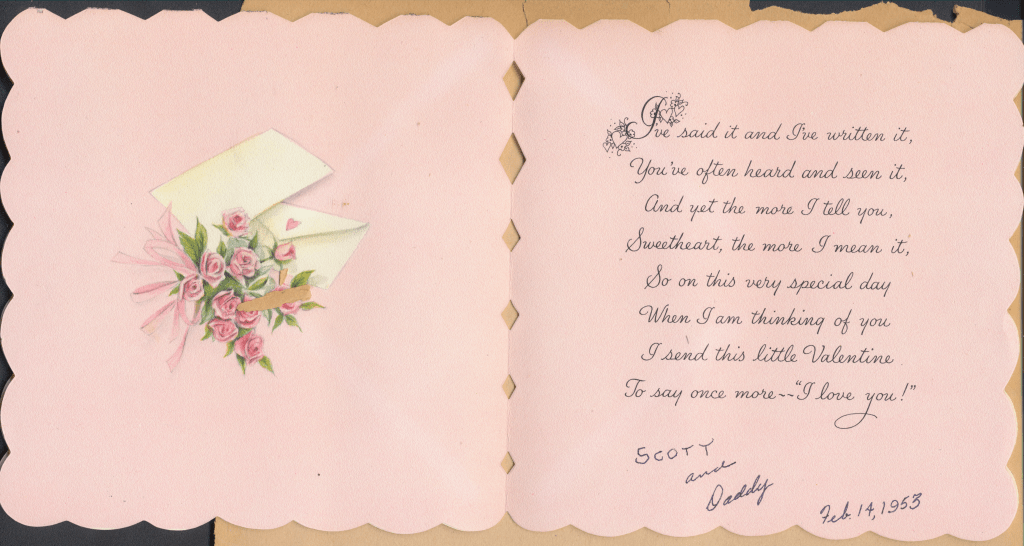 I've said it and I've written it,
You've often heard and seen it,
And yet the more I tell you,
Sweetheart, the more I mean it,
So on this very special day
When I am thinking of you
I send this little Valentine
To say once more--"I love you!"
SCOTT
and
Daddy
Feb. 14, 1953